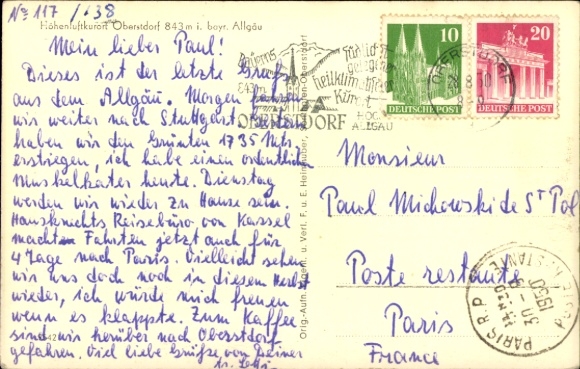 No 117 / 38
Höhenluftkurort Oberstdorf 843 m i. bayr. Allgäu
Mein lieber Paul!
Dieses ist der letzte Gruß
aus dem Allgäu. Morgen fahren
wir weiter nach Stuttgart. Gestern
haben wir den Grünten 1735 Mtr.
erstiegen, ich habe einen ordentlichen
Muskelkater heute. Dienstag
werden wir wieder zu Hause sein.
Hausknechts Reisebüro von Kassel
macht Fahrten jetzt auch für
4 Tage nach Paris. Vielleicht sehen
wir uns doch noch in diesem Herbst
wieder, ich würde mich freuen
wenn es klappte. Zum Kaffee
sind wir herüber nach Oberstdorf
gefahren. Viel liebe Grüße, von Deiner
Orig.-Aufn. Eigent. u. Verl. F. u. E. Heimhuber, Sonthofen-Oberstdorf
843m
heilklimatischer
Kurort
OBERSTDORF
HOCH
ALLGÄU
10
DEUTSCHE POST
20
DEUTSCHE POST
OBERSTDORF
Monsieur
Paul Michowski de St Pol
Poste restante
Paris
France
PARIS R.P.
POSTE RESTANTE
30 - 8
1950